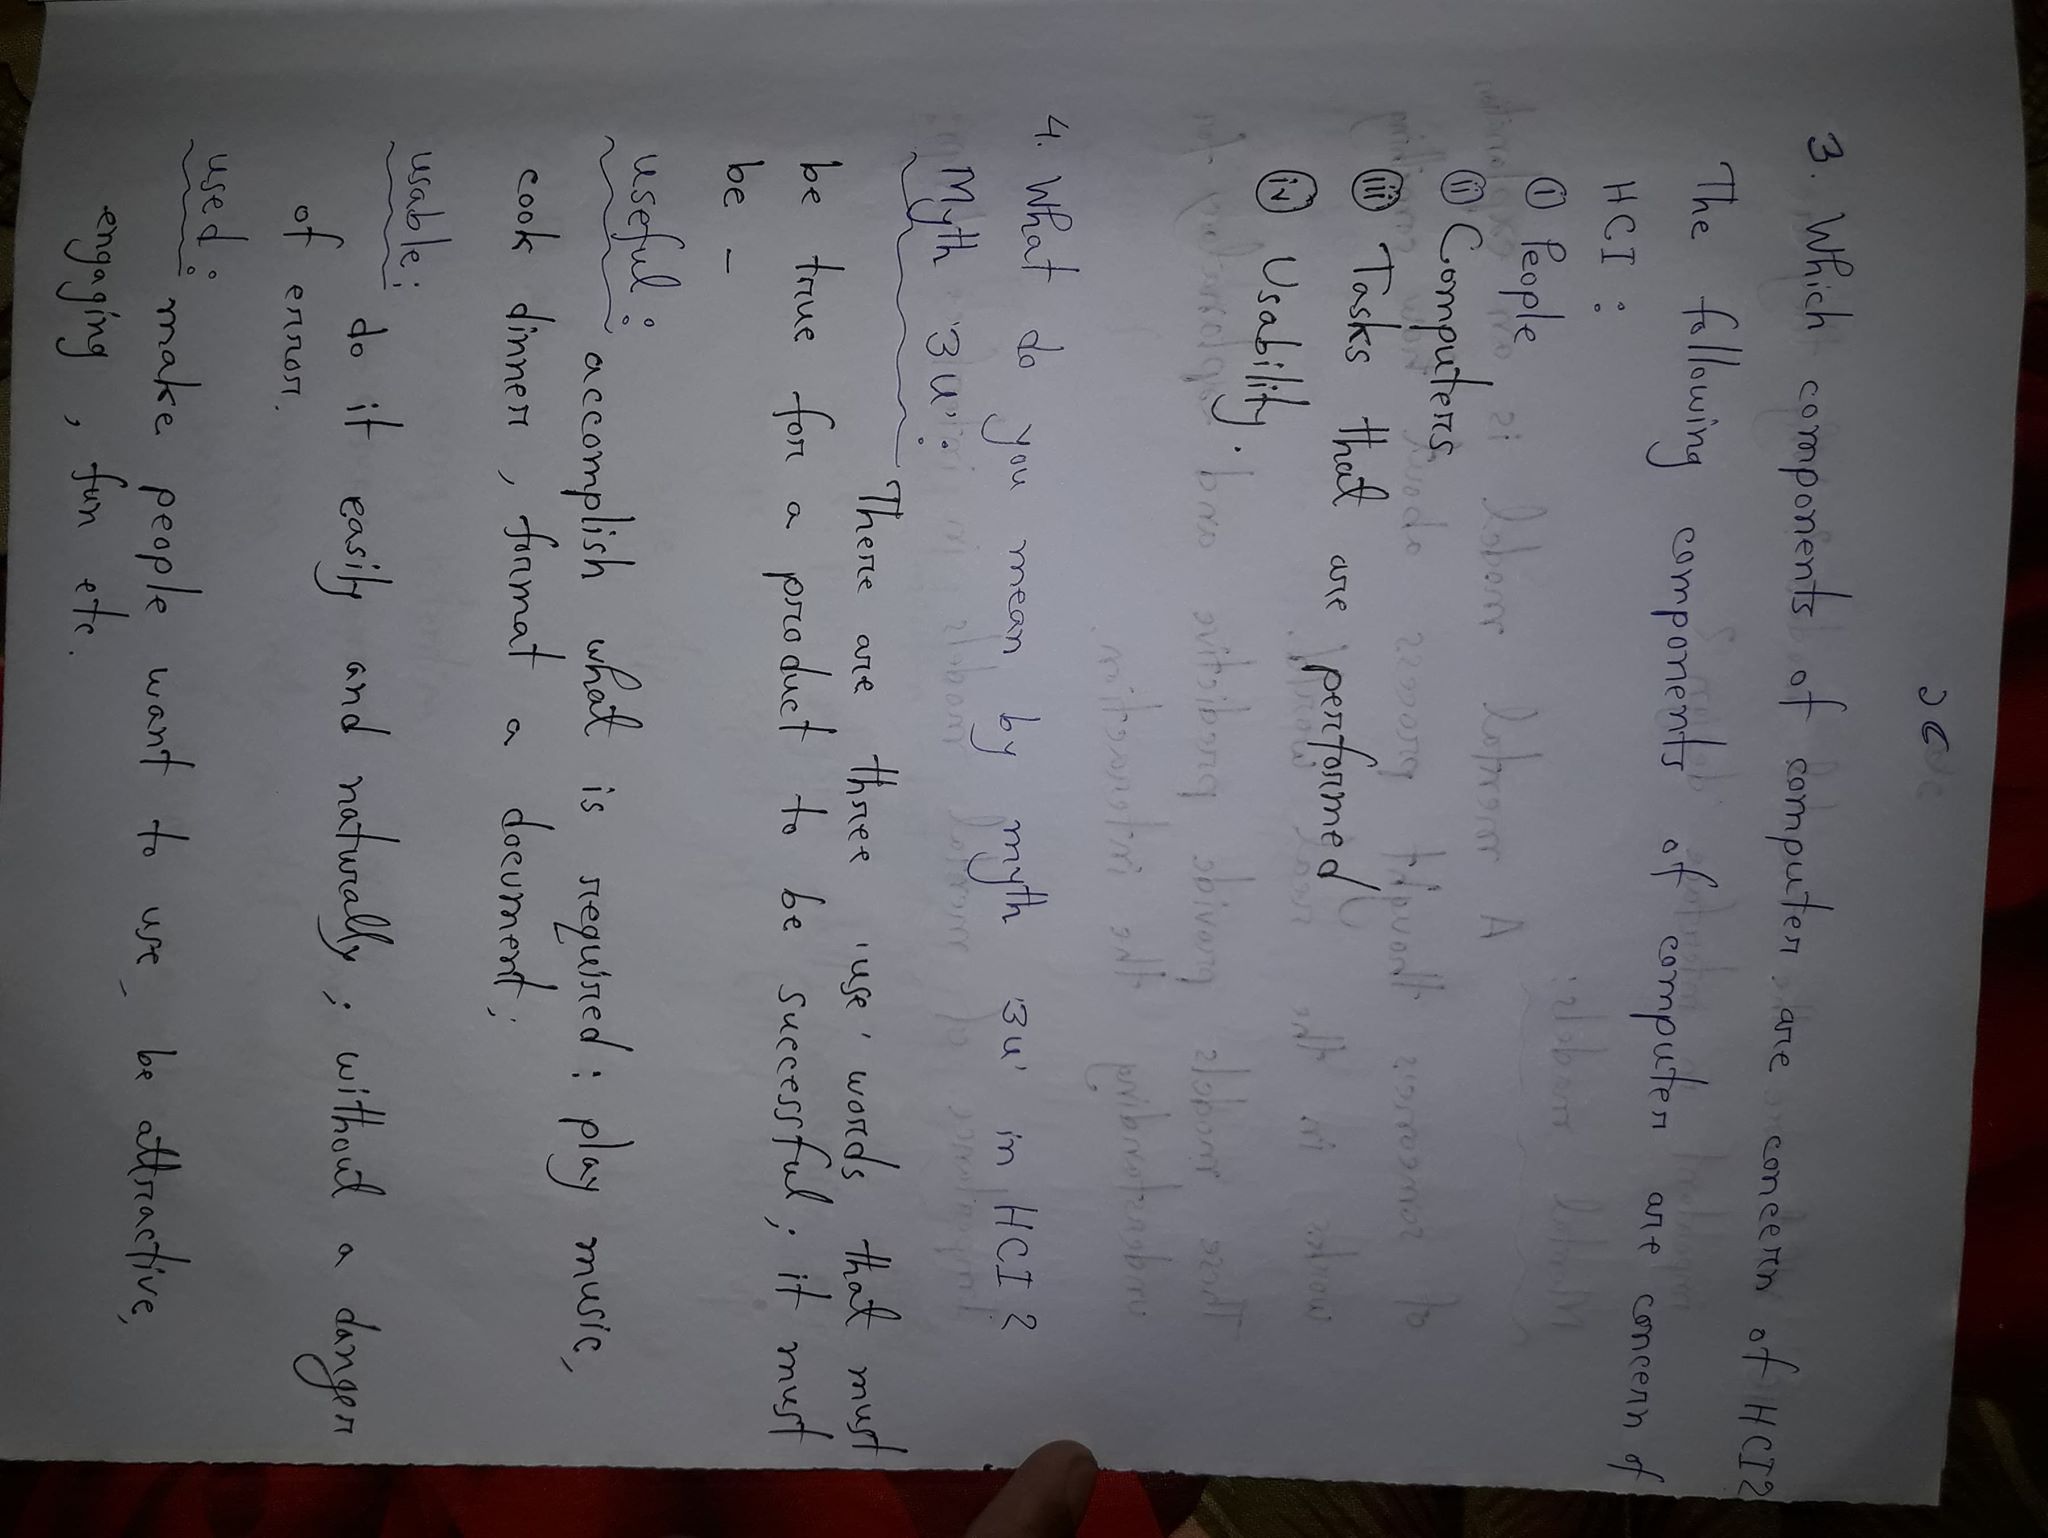 3. Which components of computer are concern of HCI?
The following components of computer are concern of
HCI :
(i) People
(ii) Computers
(iii) Tasks that are performed
(iv) Usability.
4. What do you mean by myth '3u' in HCI?
Myth '3u':
There are three 'use' words that must
be true for a product to be successful; it must
be -
useful: accomplish what is required: play music,
cook dinner, format a document;
usable: do it easily and naturally; without a danger
of error.
used: make people want to use, be attractive,
engaging, fun etc.